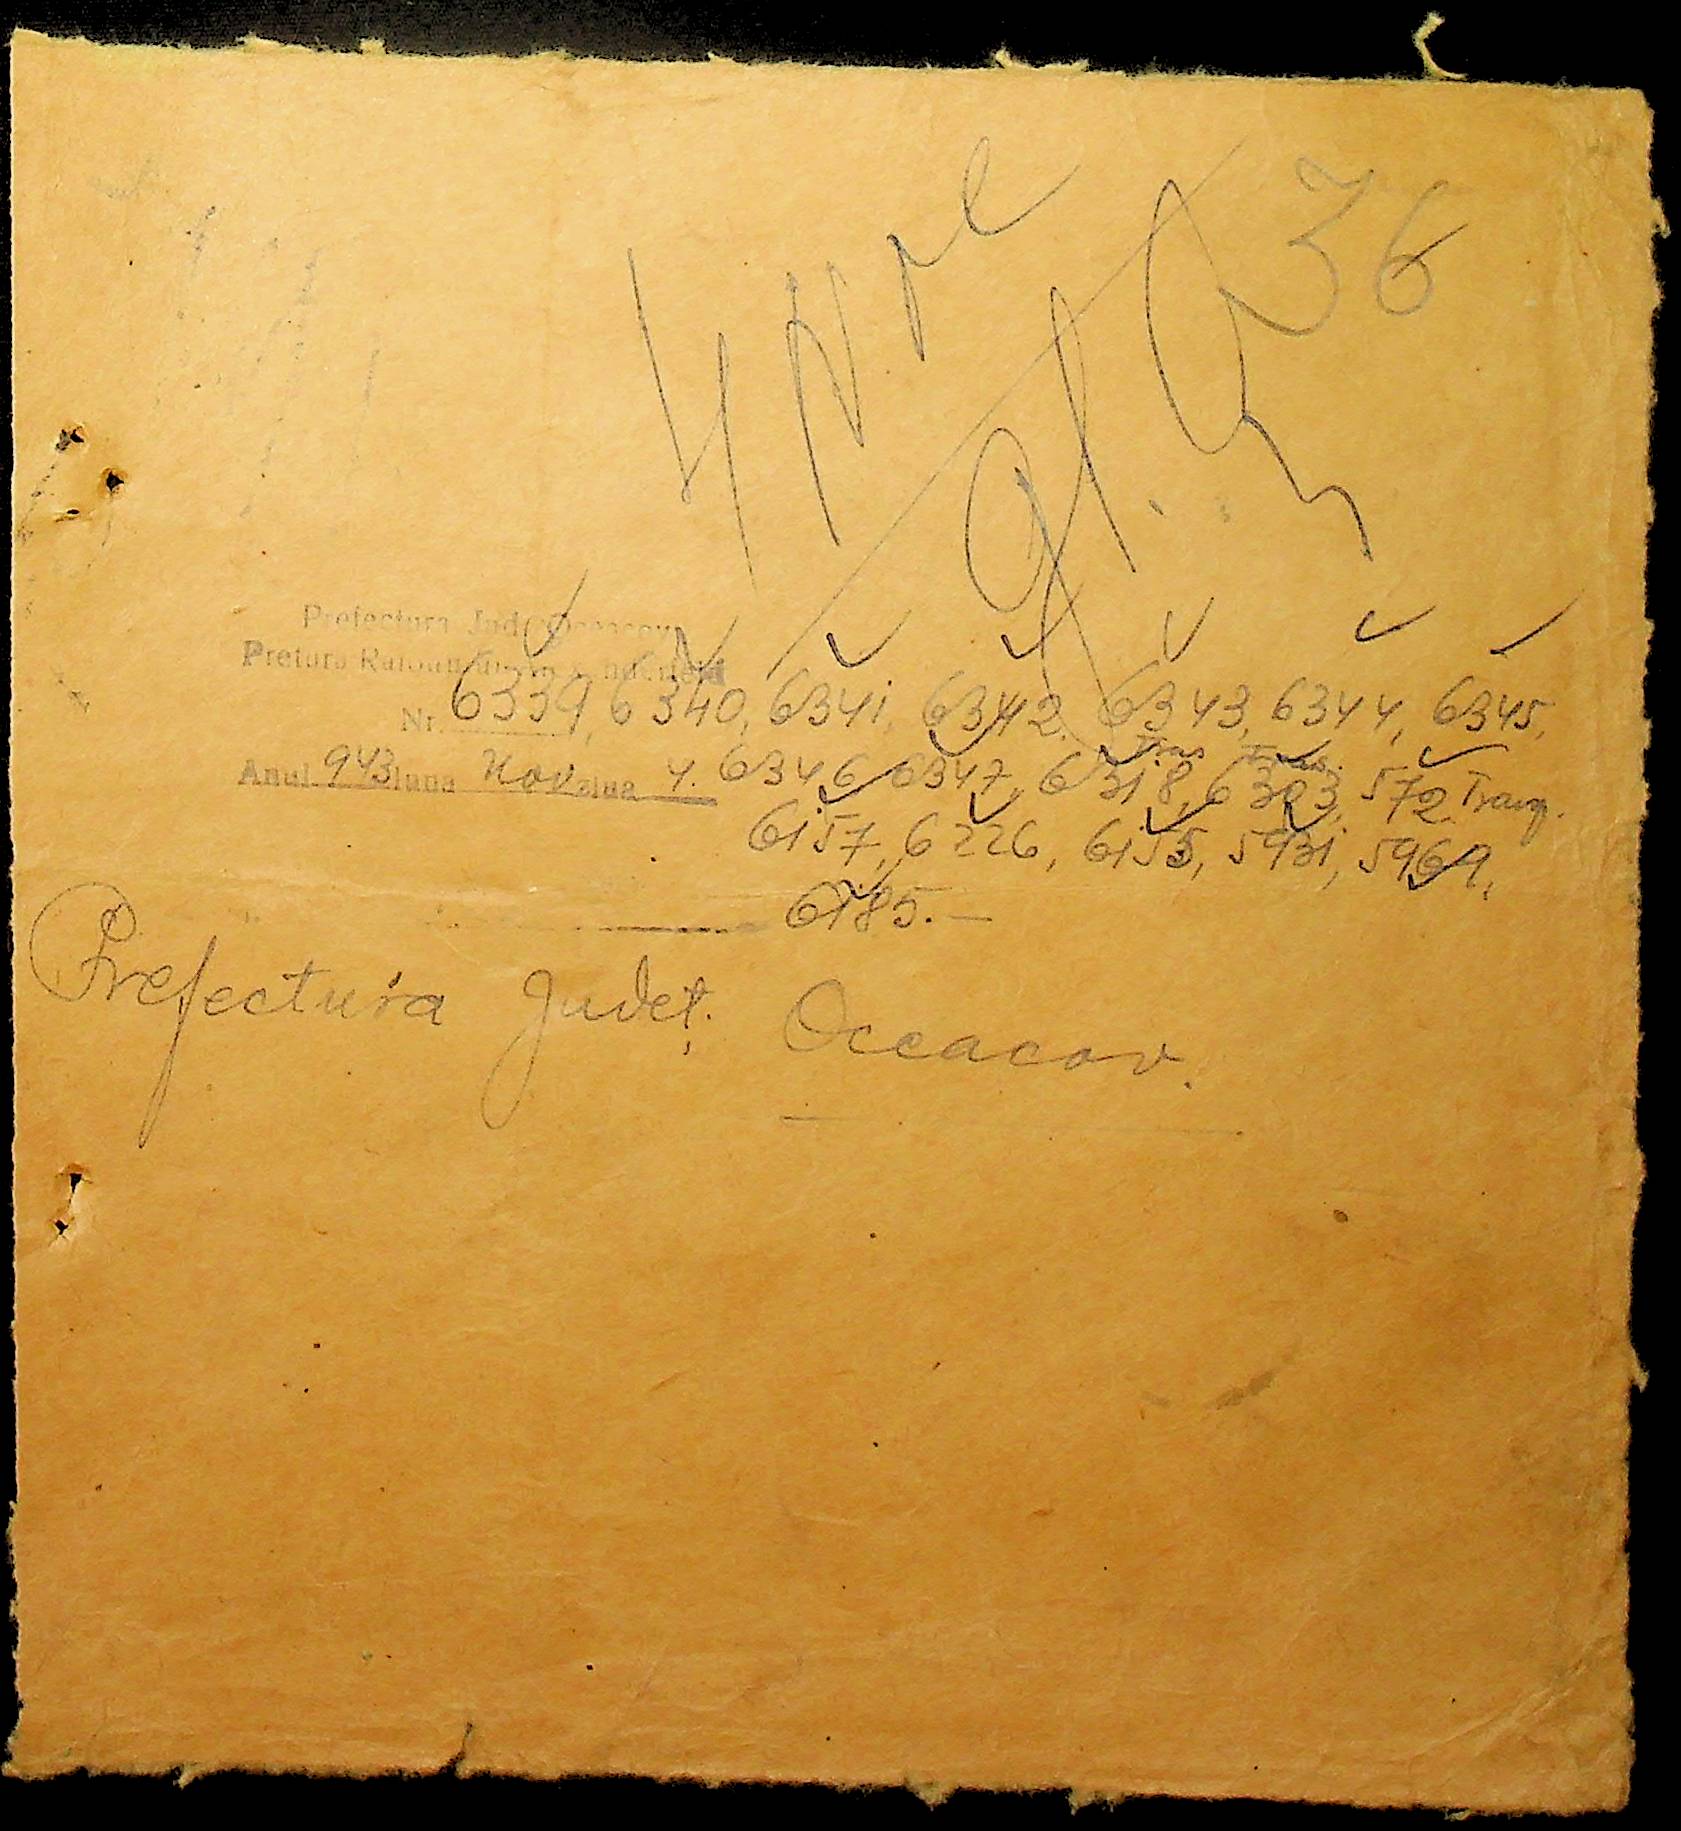 36
Prefectura Jud. Oceacov
Pretura Raionului
Nr. 6339, 6340, 6341, 6342, 6343, 6344, 6345,
Anul 943 luna Nov ziua 4. 6346, 6347, 6318, 6303, 572 Tranz.
6157, 6226, 6155, 5931, 5969,
6185.—
Prefectura Judeţ. Oceacov.